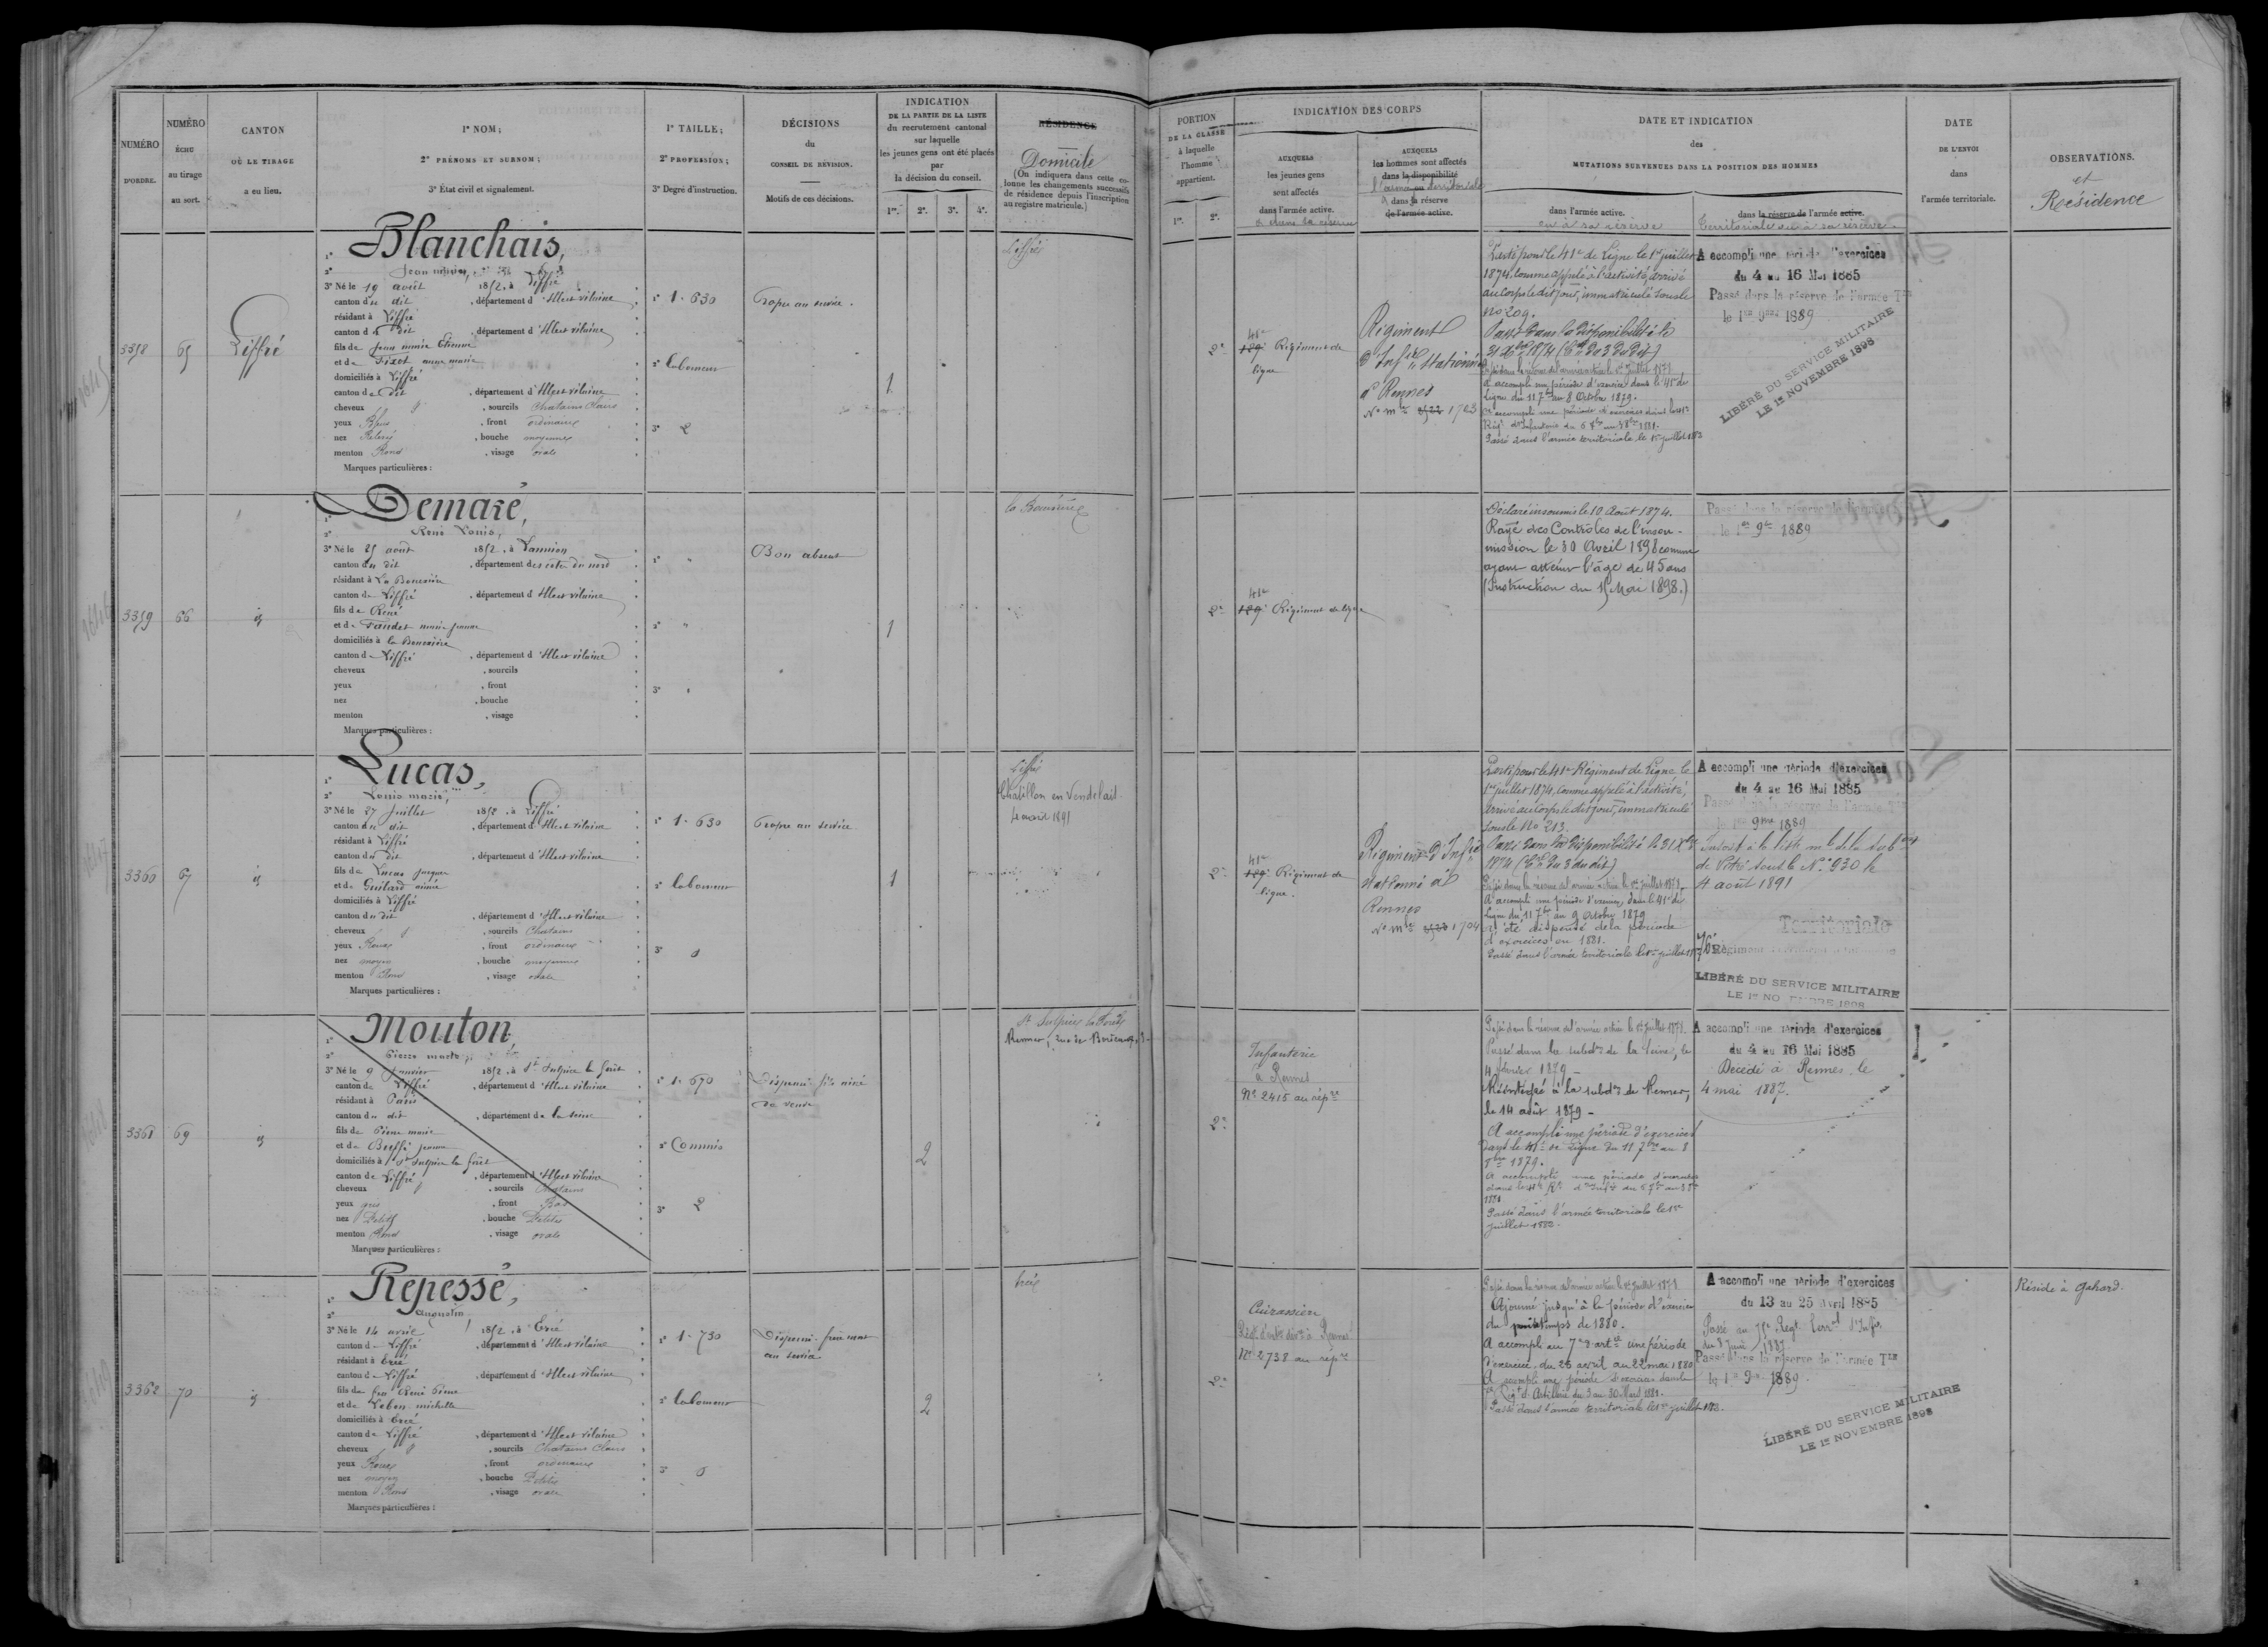 NUMÉRO
D'ORDRE.
NUMÉRO
ÉCHU
au tirage
au sort.
CANTON
OÙ LE TIRAGE
a eu lieu.
1º NOM;
2º PRÉNOMS ET SURNOM;
3º État civil et signalement.
1º TAILLE;
2º PROFESSION;
3º Degré d'instruction.
DÉCISIONS
du
CONSEIL DE RÉVISION.
Motifs de ces décisions.
INDICATION
DE LA PARTIE DE LA LISTE
du recrutement cantonal
sur laquelle
les jeunes gens ont été placés
par
la décision du conseil.
1re. 2e. 3e. 4e.
RÉSIDENCE
Domicile
(On indiquera dans cette co-
lonne les changements successifs
de résidence depuis l'inscription
au registre matricule.)
PORTION
DE LA CLASSE
à laquelle
l'homme
appartient.
1re. 2e.
INDICATION DES CORPS
AUXQUELS
les jeunes gens
sont affectés
dans l'armée active.
& dans sa réserve
AUXQUELS
les hommes sont affectés
dans la disponibilité
l'armée territoriale
& dans sa réserve
de l'armée active.
DATE ET INDICATION
des
MUTATIONS SURVENUES DANS LA POSITION DES HOMMES
dans l'armée active.
ou à sa réserve
dans la réserve de l'armée active.
Territoriale ou à sa réserve.
DATE
DE L'ENVOI
dans
l'armée territoriale.
OBSERVATIONS.
et
Résidence
3358
65
Liffré
1º Blanchais,
2º Jean
3º Né le 19 août 1852, à Liffré
canton du dit, département d'Ille et vilaine
résidant à Liffré
canton du dit, département d'Ille et vilaine
fils de Jean marie Etienne
et de Fixot anne marie
domiciliés à Liffré
canton du dit, département d'Ille et vilaine
cheveux, sourcils Chatains Clairs
yeux Bleus, front ordinaire
nez Relevé, bouche moyenne
menton Rond, visage ovale
Marques particulières:
1º 1.630
2º laboureur
3º 2
Propre au service.
1
Liffré
2e
41e
129e Régiment de
ligne
Régiment
d'Infrie Stationné
à Rennes
No mle 1703
Porté pour le 41e de Ligne le 1er juillet
1874, comme appelé à l'activité, arrivé
au corps le dit jour, immatriculé sous le
No 209.
Passé dans la disponibilité le
31 Xbre 1874 (Con du 3 du dit)
Passé dans la réserve de l'armée active le 1er Juillet 1878
A accompli une période d'exercice dans le 41e de
Ligne du 11 7bre au 8 Octobre 1879.
A accompli une période d'exercices dans le 41e
Régt d'Infanterie du 6 7bre au 3 8bre 1881.
Passé dans l'armée territoriale le 1er juillet 1883
A accompli une période d'exercices
du 4 au 16 Mai 1885
Passé dans la réserve de l'armée Tle
le 1er 9bre 1889
LIBÉRÉ DU SERVICE MILITAIRE
LE 1er NOVEMBRE 1898
3359
66
id
1º Demaré,
2º René Louis,
3º Né le 25 août 1852, à Lannion
canton du dit, département des cotes du nord
résidant à La Bouexière
canton de Liffré, département d'Ille et vilaine
fils de René
et de Faudet marie jeanne
domiciliés à la Bouexière
canton de Liffré, département d'Ille et vilaine
cheveux, sourcils
yeux, front
nez, bouche
menton, visage
Marques particulières:
1º "
2º "
3º "
Bon absent
1
la Bouexière
2e
41e
129e Régiment de ligne
Déclaré insoumis le 10 Août 1874.
Rayé des Contrôles de l'insou-
mission le 30 Avril 1898 comme
ayant atteint l'âge de 45 ans
(Instruction du 15 Mai 1898.)
Passé dans la réserve de l'armée
le 1er 9bre 1889
3360
67
id
1º Lucas,
2º Louis marie,
3º Né le 27 Juillet 1852, à Liffré
canton du dit, département d'Ille et vilaine
résidant à Liffré
canton du dit, département d'Ille et vilaine
fils de Lucas Jacques
et de Guilard aimée
domiciliés à Liffré
canton du dit, département d'Ille et vilaine
cheveux, sourcils Chatains
yeux Roux, front ordinaire
nez moyen, bouche moyenne
menton Rond, visage ovale
Marques particulières:
1º 1.630
2º laboureur
3º 0
Propre au service
1
Liffré
Chatillon en Vendelais
1891
2e
41e
129e Régiment de
ligne.
Régiment d'Infrie
stationné à
Rennes
No mle 1704
Porté pour le 41e Régiment de Ligne le
1er juillet 1874, comme appelé à l'activité,
arrivé au corps le dit jour, immatriculé
sous le No 213.
Passé dans la disponibilité le 31 Xbre
1874 (Con du 3 du dit)
Passé dans la réserve de l'armée active le 1er juillet 1878.
A accompli une période d'exercices dans le 41e de
Ligne du 11 7bre au 9 Octobre 1879
A été dispensé de la période
d'exercices en 1881.
Passé dans l'armée territoriale le 1er juillet 1883
A accompli une période d'exercices
du 4 au 16 Mai 1885
Passé dans la réserve de l'armée Tle
le 1er 9bre 1889
Inscrit à la liste mle de la subon
de Vitré sous le No 930 le
4 août 1891
Territoriale
76e Régiment
LIBÉRÉ DU SERVICE MILITAIRE
LE 1er NOVEMBRE 1898
3361
69
id
1º Mouton,
2º Pierre marie
3º Né le 9 Janvier 1852, à St Sulpice la forêt
canton de Liffré, département d'Ille et vilaine
résidant à Paris
canton du dit, département de la seine
fils de Pierre marie
et de Breffé jeanne
domiciliés à St Sulpice la forêt
canton de Liffré, département d'Ille et vilaine
cheveux, sourcils Chatains
yeux gris, front Bas
nez Petit, bouche Petite
menton Rond, visage ovale
Marques particulières:
1º 1.670
2º Commis
3º 2
Dispensé fils ainé
de veuve
2
St Sulpice la Forêt
Rennes, rue de
2e
Infanterie
à Rennes
No 2415 au répre
Passé dans la réserve de l'armée active le 1er Juillet 1878.
Passé dans la subdon de la Seine, le
4 février 1879 -
Réintégré à la subdon de Rennes,
le 14 août 1879 -
A accompli une période d'exercices
dans le 41e de Ligne du 11 7bre au 8
8bre 1879.
A accompli une période d'exercices
dans le 41e Rgt d'Infie du 6 7bre au 3 8bre
1881
Passé dans l'armée territoriale le 1er
juillet 1883.
A accompli une période d'exercices
du 4 au 16 Mai 1885
Décédé à Rennes le
4 mai 1887.
3362
70
id
1º Repessé,
2º Augustin,
3º Né le 14 avril 1852, à Ercé
canton de Liffré, département d'Ille et vilaine
résidant à Ercé
canton de Liffré, département d'Ille et vilaine
fils de feu René Pierre
et de Lebon michelle
domiciliés à Ercé
canton de Liffré, département d'Ille et vilaine
cheveux, sourcils Chatains Clairs
yeux Roux, front ordinaire
nez moyen, bouche Petite
menton Rond, visage ovale
Marques particulières:
1º 1.730
2º laboureur
3º 0
Dispensé frère mort
au service
2
Ercé
2e
Cuirassiers
à Rennes
No 2738 au répre
Passé dans la réserve de l'armée active le 1er Juillet 1878
Ajourné jusqu'à la période d'exercices
du printemps de 1880.
A accompli au 7e d'artie une période
d'exercice, du 26 avril au 22 mai 1880
A accompli une période d'exercices dans le
7e Régt d'Artillerie du 3 au 30 Mars 1881.
Passé dans l'armée territoriale le 1er juillet 1883.
A accompli une période d'exercices
du 13 au 25 Avril 1885
Passé au 75e Régt Terral d'Infie
du 8 Juin 1887.
Passé dans la réserve de l'armée Tle
le 1er 9bre 1889.
LIBÉRÉ DU SERVICE MILITAIRE
LE 1er NOVEMBRE 1898
Réside à Gahard.